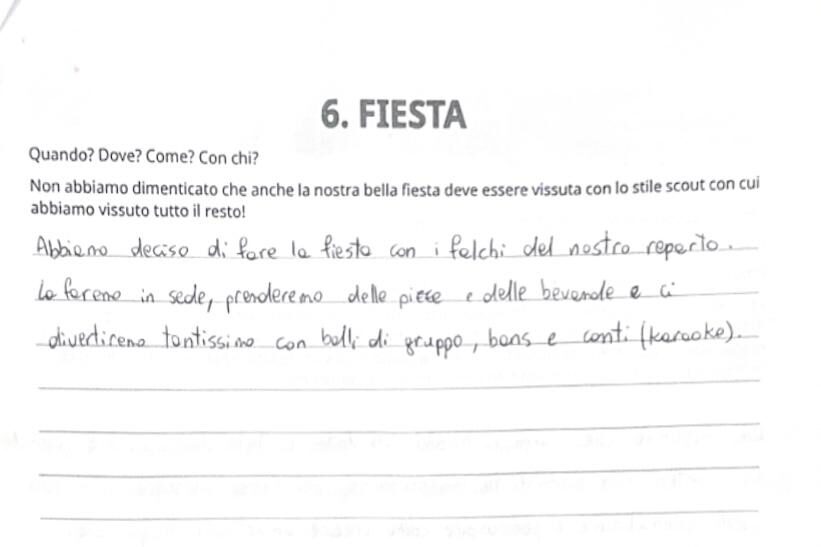 6. FIESTA
Quando? Dove? Come? Con chi?
Non abbiamo dimenticato che anche la nostra bella fiesta deve essere vissuta con lo stile scout con cui
abbiamo vissuto tutto il resto!
Abbiamo deciso di fare la fiesta con i falchi del nostro reparto.
La faremo in sede, prenderemo delle pizze e delle bevande e ci
divertiremo tantissimo con balli di gruppo, bans e canti (karaoke).